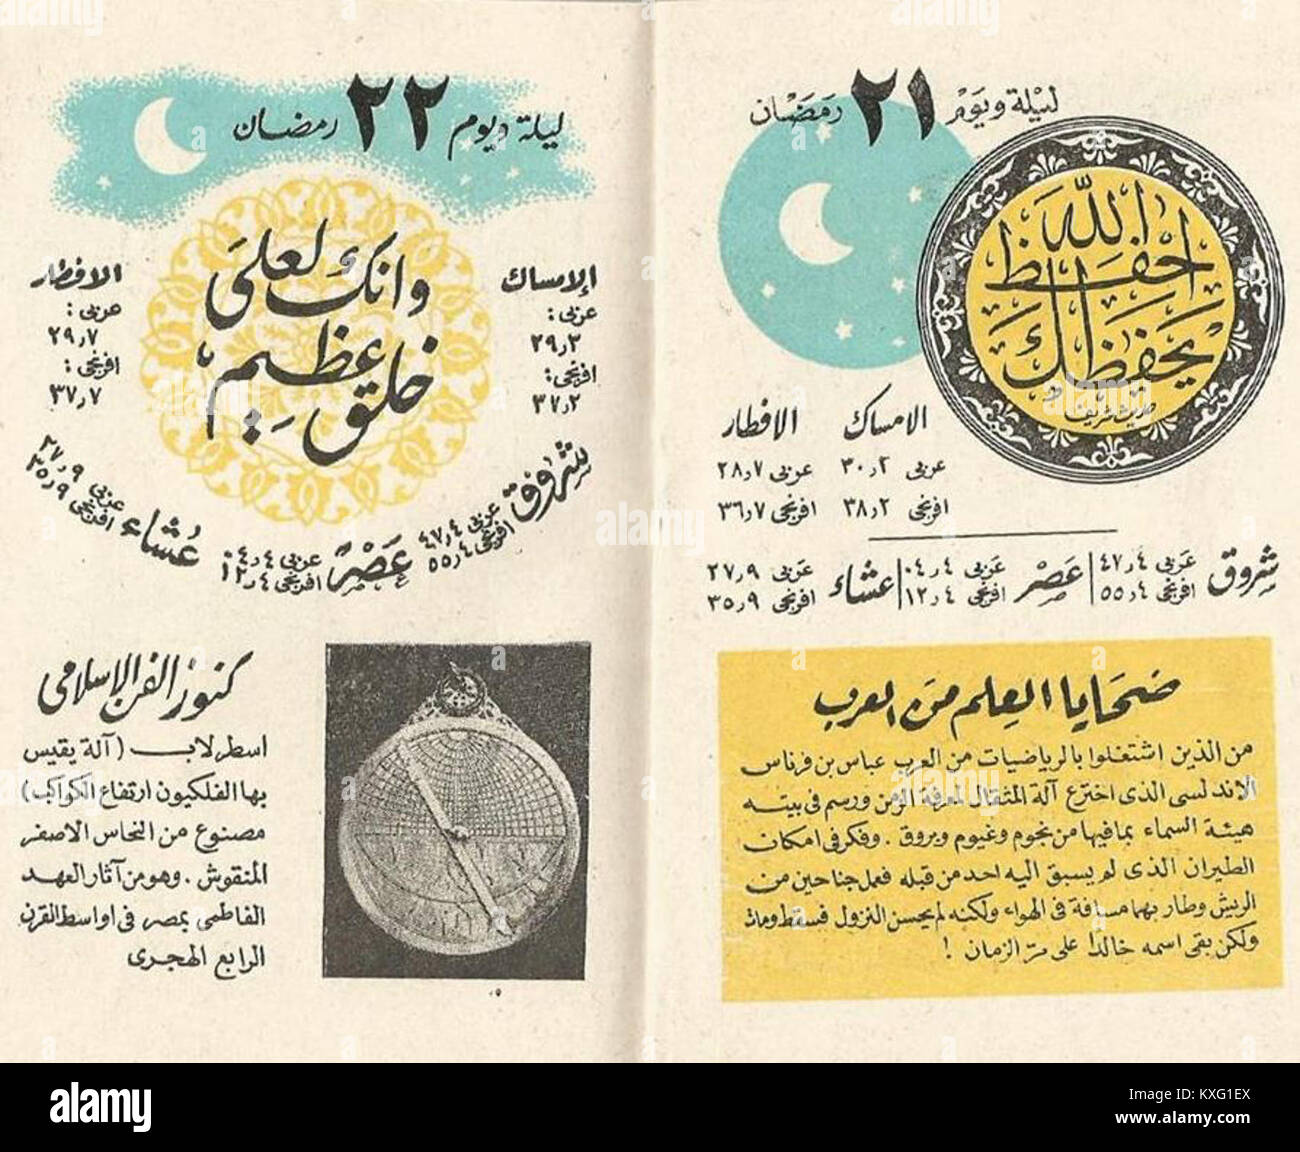 ليلة ويوم ٢١ رمضان
احفظ الله
يحفظك
حديث شريف
الامساك
عربى ٣٠ر٢
افرنجى ٣٨ر٢
الافطار
عربى ٢٨ر٧
افرنجى ٣٦ر٧
شروق
عربى ٤٧ر٤
افرنجى ٥٥ر٤
عصر
عربى ٠٤ر٤
افرنجى ١٢ر٤
عشاء
عربى ٢٧ر٩
افرنجى ٣٥ر٩
ضحايا العلم من العرب
من الذين اشتغلوا بالرياضيات من العرب عباس بن فرناس
الاندلسى الذى اخترع آلة المنقال لمعرفة الزمن ورسم فى بيته
هيئة السماء بما فيها من نجوم وغيوم وبروق . وفكر فى امكان
الطيران الذى لم يسبق اليه احد من قبله فعمل جناحين من
الريش وطار بهما مسافة فى الهواء ولكنه لم يحسن النزول فسقط ومات
ولكن بقى اسمه خالدا على مر الزمان !
ليلة ويوم ٢٢ رمضان
وانك لعلى
خلق عظيم
الإمساك
عربى :
٢٩ر٢
افرنجى :
٣٧ر٢
الافطار
عربى :
٢٩ر٧
افرنجى :
٣٧ر٧
شروق
عربى ٤٧ر٤
افرنجى ٥٥ر٤
عصر
عربى ٠٤ر٤
افرنجى ١٢ر٤
عشاء
عربى ٢٧ر٩
افرنجى ٣٥ر٩
كنوز الفن الإسلامى
اسطرلاب (آلة يقيس
بها الفلكيون ارتفاع الكواكب)
مصنوع من النحاس الاصفر
المنقوش . وهو من آثار العهد
الفاطمى بمصر فى اواسط القرن
الرابع الهجرى
alamy
Image ID: KXG1EX
www.alamy.com